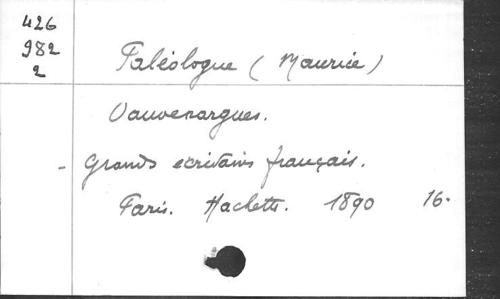 426
982
2
Paléologue (Maurice)
Vauvenargues.
- Grands écrivains français.
Paris. Hachette. 1890 16.